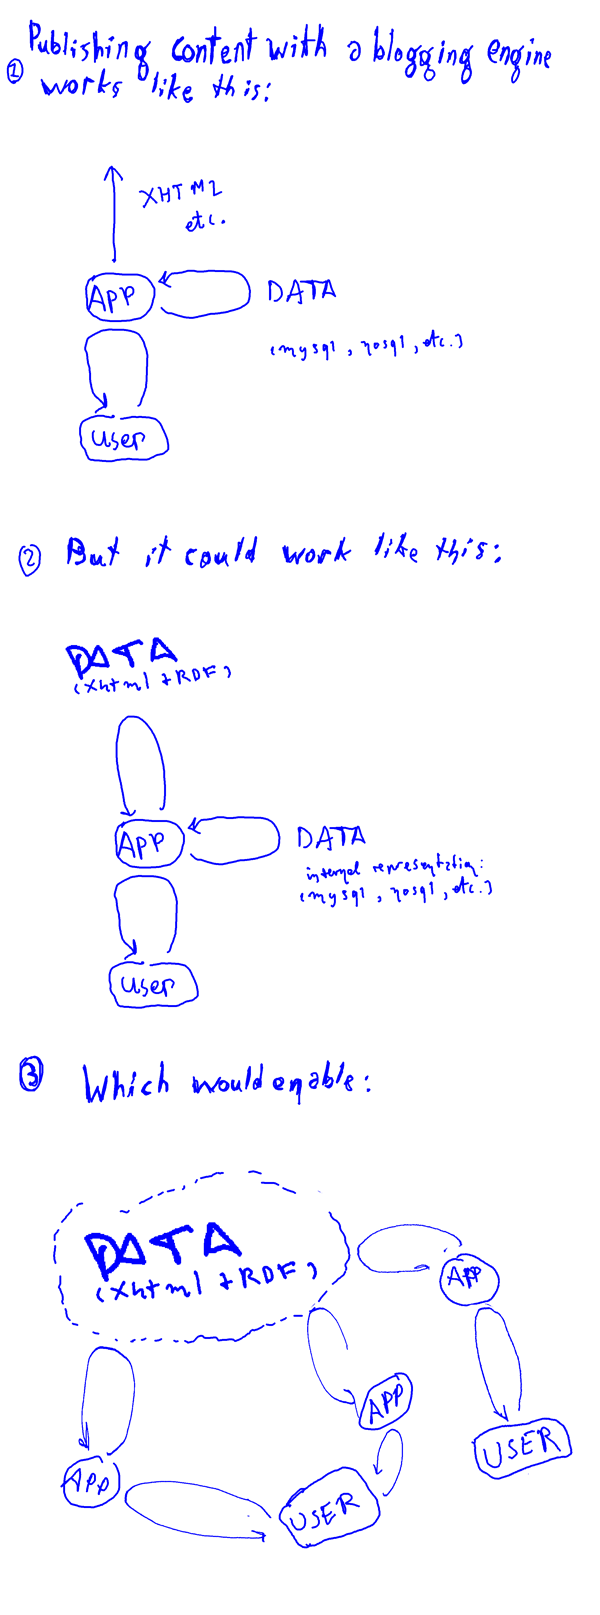 Publishing content with a blogging engine
① works like this:
XHTML
etc.
APP
DATA
(mysql, nosql, etc.)
user
② But it could work like this:
DATA
(xhtml + RDF)
APP
DATA
internal representation:
(mysql, nosql, etc.)
user
③ Which would enable:
DATA
(xhtml + RDF)
APP
APP
USER
APP
USER